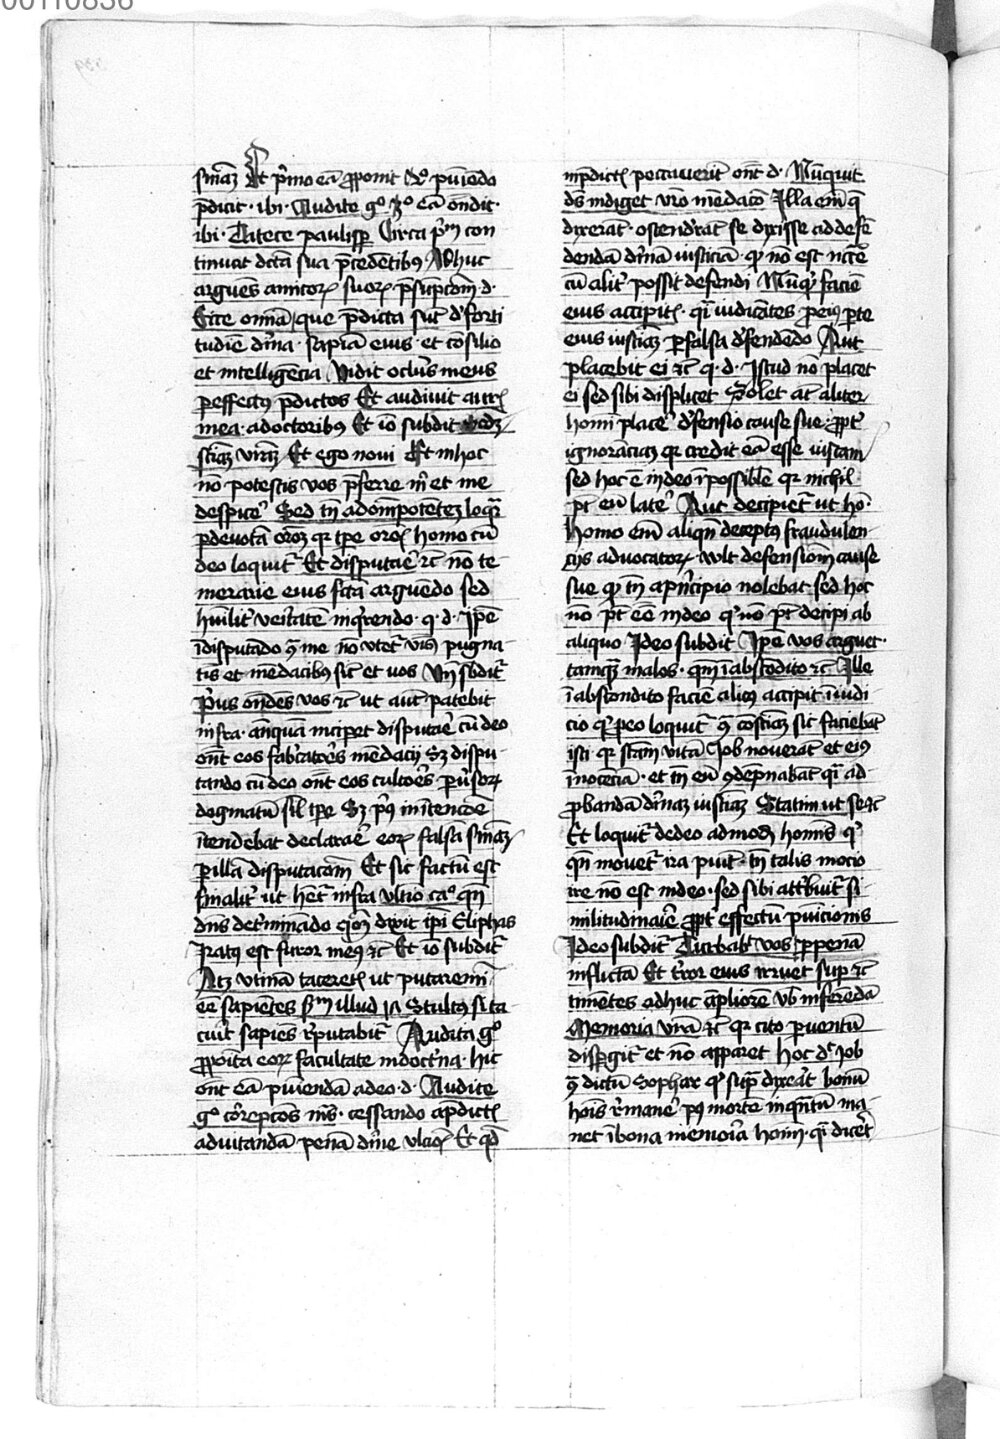 smāz Et p̄mo eā ꝓponit Scďo puīendo
p̄dicit · ibi · Audite gͦ · 3ͦ eā oñdit ·
ibi · Tacete paulisꝑ Circa p̄m con
tinuat dicta sua p̄cedētibꝰ Adhuc
argues amicoꝝ suoꝝ p̄sūptoēm · d ·
Ecce omīa que p̄dicta sūt de forti
tudīe diīna · sapīa eius · et consilio
et intelligēcia Vidit oculꝰ meus
ꝑ effectꝰ p̄dictos Et audiuit auris
mea · a doctoribꝰ Et iō subdit
sciāz vrāz Et ego noui Et in hoc
nō potestis vos p̄ferre m̄ et me
despice͛ Sed tn̄ ad om̄ipotētez loqr̄
ꝑ deuotā orōz qr tp̄e orōis homo cū
deo loquit᷑ Et disputar̄e ⁊c̄ nō te
merarie eius fctā arguēdo sed
hūilit᷑ veritatē inq̄rendo · q · d · ip̄e
ī disputādo ꝯ me nō vtet᷑ v̄bis pugna
tis et mēdacibꝰ sic̄ et vos Vn̄ sbdit᷑
P̄us ondēs vos ⁊c̄ ut aut̄ patebit
infra · anqꝫ incipet disputar̄e cū deo
ont̄ eos fabricator̄es mēdacij Sz dispu
tando cū deo ont̄ eos cultor̄es ꝑuisoꝝ
dogmatū sil̄ tp̄e Sz pꝰ in intēdēe
ītendebat declarar̄e eoꝝ falsā smāz
ꝑ illā disputacoēm Et sic factū est
finalit᷑ ut hēt᷑ infra vltīo caͦ qn̄
dn̄s det᷑minādo qōnē dixit ip̄i Eliphas
Iratꝰ est furor meꝰ ⁊c̄ Et iō subdit᷑
Atqꝫ vtinā taceretis ut putaremī
ee sapiētes p̄m illud Stultꝰ si ta
cuīt sapiēs r̄putabit᷑ Audita gͦ
ꝓpoīta eoꝝ facultate in doctīna · hic
ont̄ eā puīendā a deo · d · Audite
gͦ cor̄repcoēs m̄s · cessando a p̄dictis
ad vitandā penā dīne vltiōis Et qd̄
in p̄dictis peccauerit ont̄ · d · Nūquit
ds̄ indiget vr̄o mēdaco Illa em̄ q̄
dixerat · ostendr̄at se dixisse ad defē
dendā diīnā iusticiā · qd nō est necē
cū alit᷑ possit defendi Nūqd faciē
eius accipitis · qr̄ iudicātes ꝓ eiꝰ ꝑte
eius iusticiaz ꝑ falsa d᷑fendēdo Aut
placebit ei ⁊c̄ · q · d · Istud nō placet
ei sed sibi displicet Solet at̄ aliter
homī place͛ d᷑fensio cause sue · ꝓpt᷑
ignorāciaz qr credit eā esse iustam
sed hoc ē in deo īpossible qr nichil
pt̄ eū late͛ Aut decipiet᷑ ut ho ·
homo em̄ aliqn̄ deceptꝰ fraudulen
cijs aduocatoꝝ · vult defensionēm cause
sue qd tn̄ a p̄ncipio nolebat · sed hoc
nō pt̄ ee in deo qr nō pt̄ decipi ab
aliquo Ideo subdit Ip̄e vos arguet ·
tamqꝫ malos · qm̄ ī abscōdito ⁊c̄ Ille
ī abscondito faciē aliciꝰ accipit ī iudi
cio qr p eo loquit᷑ ꝯ cōsciāz sic faciebāt
isti qr sctam vitā Iob nouerāt et eiꝰ
īnocēciā · et tn̄ eū ꝯdēpnabāt qr̄ ad
ꝓbandā diīnaz iusticiaz Statim ut se ⁊c̄
Et loquit᷑ de deo ad modū homīs qr
qn̄ mouet᷑ ira puīt · tn̄ talis mocio
ire nō est in deo · sed sibi attribuit᷑ si
militudinarie ꝓpt᷑ effectū puīcionis
Ideo subdit᷑ Turbabit vos ꝑ penā
inflictā Et t᷑ror eius irruet sup ⁊c̄
timētes adhuc ampliorē vobis inferēdā
Memoria vr̄a ⁊c̄ qr cito ꝑ ventū
dispgit᷑ et nō apparet hoc dc̄ Iob
ꝯ dictū Sophar qr sup̄ dixerat bonū
hoīs r̄mane͛ pꝰ morte inqntū ma
net ī bona memoīa homīm · qr̄ dicer̄et